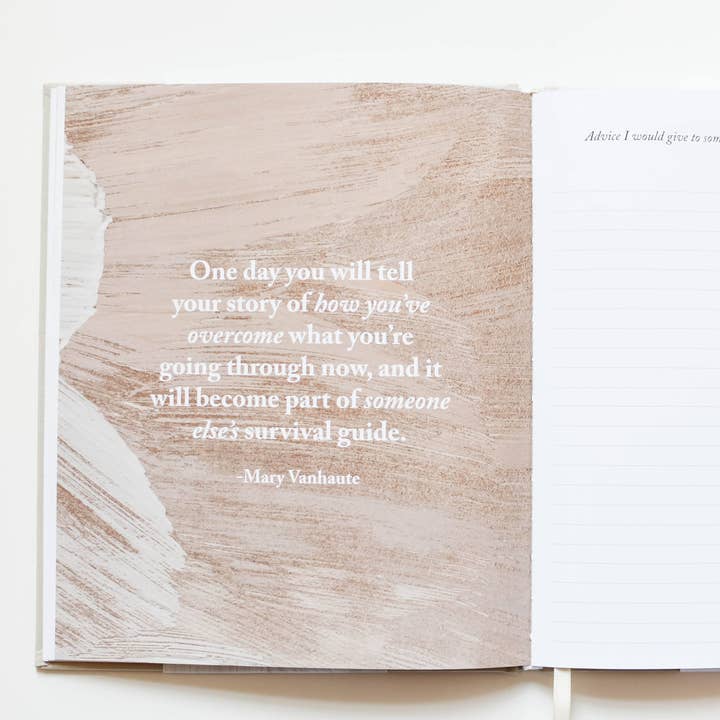 One day you will tell
your story of how you've
overcome what you're
going through now, and it
will become part of someone
else's survival guide.
-Mary Vanhaute
Advice I would give to